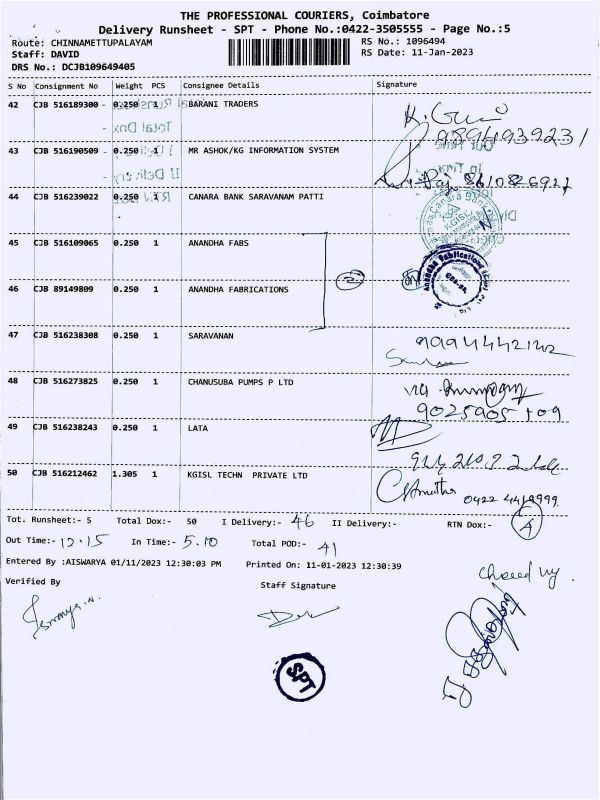 THE PROFESSIONAL COURIERS, Coimbatore
Delivery Runsheet - SPT - Phone No.:0422-3505555 - Page No.:5
Route: CHINNAMETTUPALAYAM RS No.: 1096494
Staff: DAVID RS Date: 11-Jan-2023
DRS No.: DCJB109649405
S No Consignment No Weight PCS Consignee Details Signature
42 CJB 516189300 0.250 1 BARANI TRADERS
9594939231
43 CJB 516190509 0.250 1 MR ASHOK/KG INFORMATION SYSTEM
44 CJB 516239022 0.250 1 CANARA BANK SARAVANAM PATTI
45 CJB 516109065 0.250 1 ANANDHA FABS
46 CJB 89149809 0.250 1 ANANDHA FABRICATIONS
47 CJB 516238308 0.250 1 SARAVANAN
48 CJB 516273825 0.250 1 CHANUSUBA PUMPS P LTD
49 CJB 516238243 0.250 1 LATA
50 CJB 516212462 1.305 1 KGISL TECHN PRIVATE LTD
Tot. Runsheet:- 5 Total Dox:- 50 I Delivery:- 46 II Delivery:- RTN Dox:- 4
Out Time:- 12.15 In Time:- 5.10 Total POD:- 41
Entered By :AISWARYA 01/11/2023 12:30:03 PM Printed On: 11-01-2023 12:30:39
Verified By Staff Signature
SPT